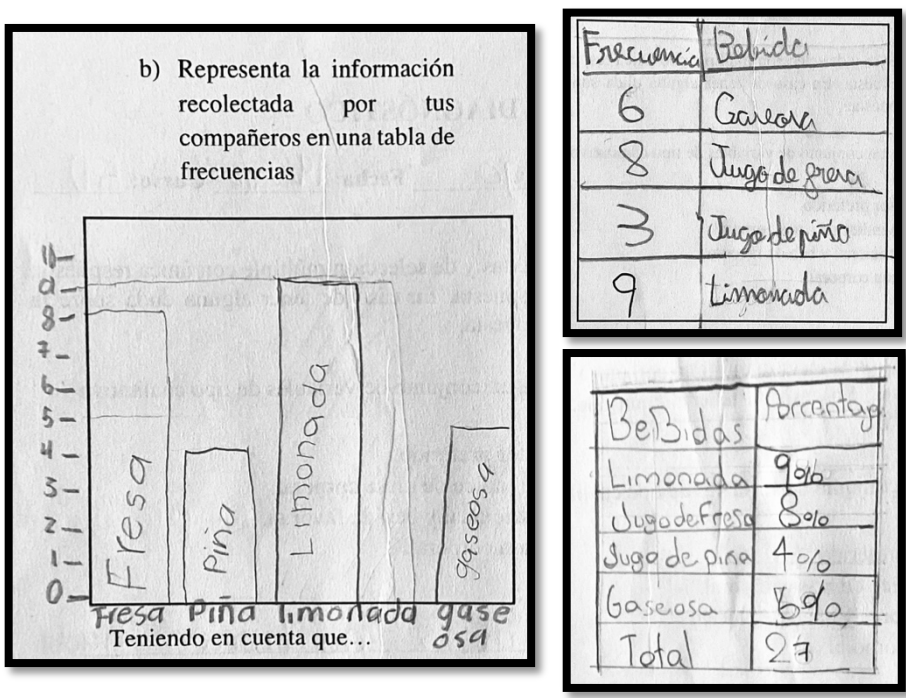 b) Representa la información
recolectada por tus
compañeros en una tabla de
frecuencias
10
9
8
7
6
5
4
3
2
1
0
Fresa
Piña
Limonada
gaseosa
Fresa Piña limonada gase
osa
Teniendo en cuenta que…
Frecuencia Bebida
6 Gaseosa
8 Jugo de fresa
3 Jugo de piña
9 Limonada
BeBidas Porcentag
Limonada 9%
Jugo de fresa 8%
Jugo de piña 4%
Gaseosa 6%
Total 27